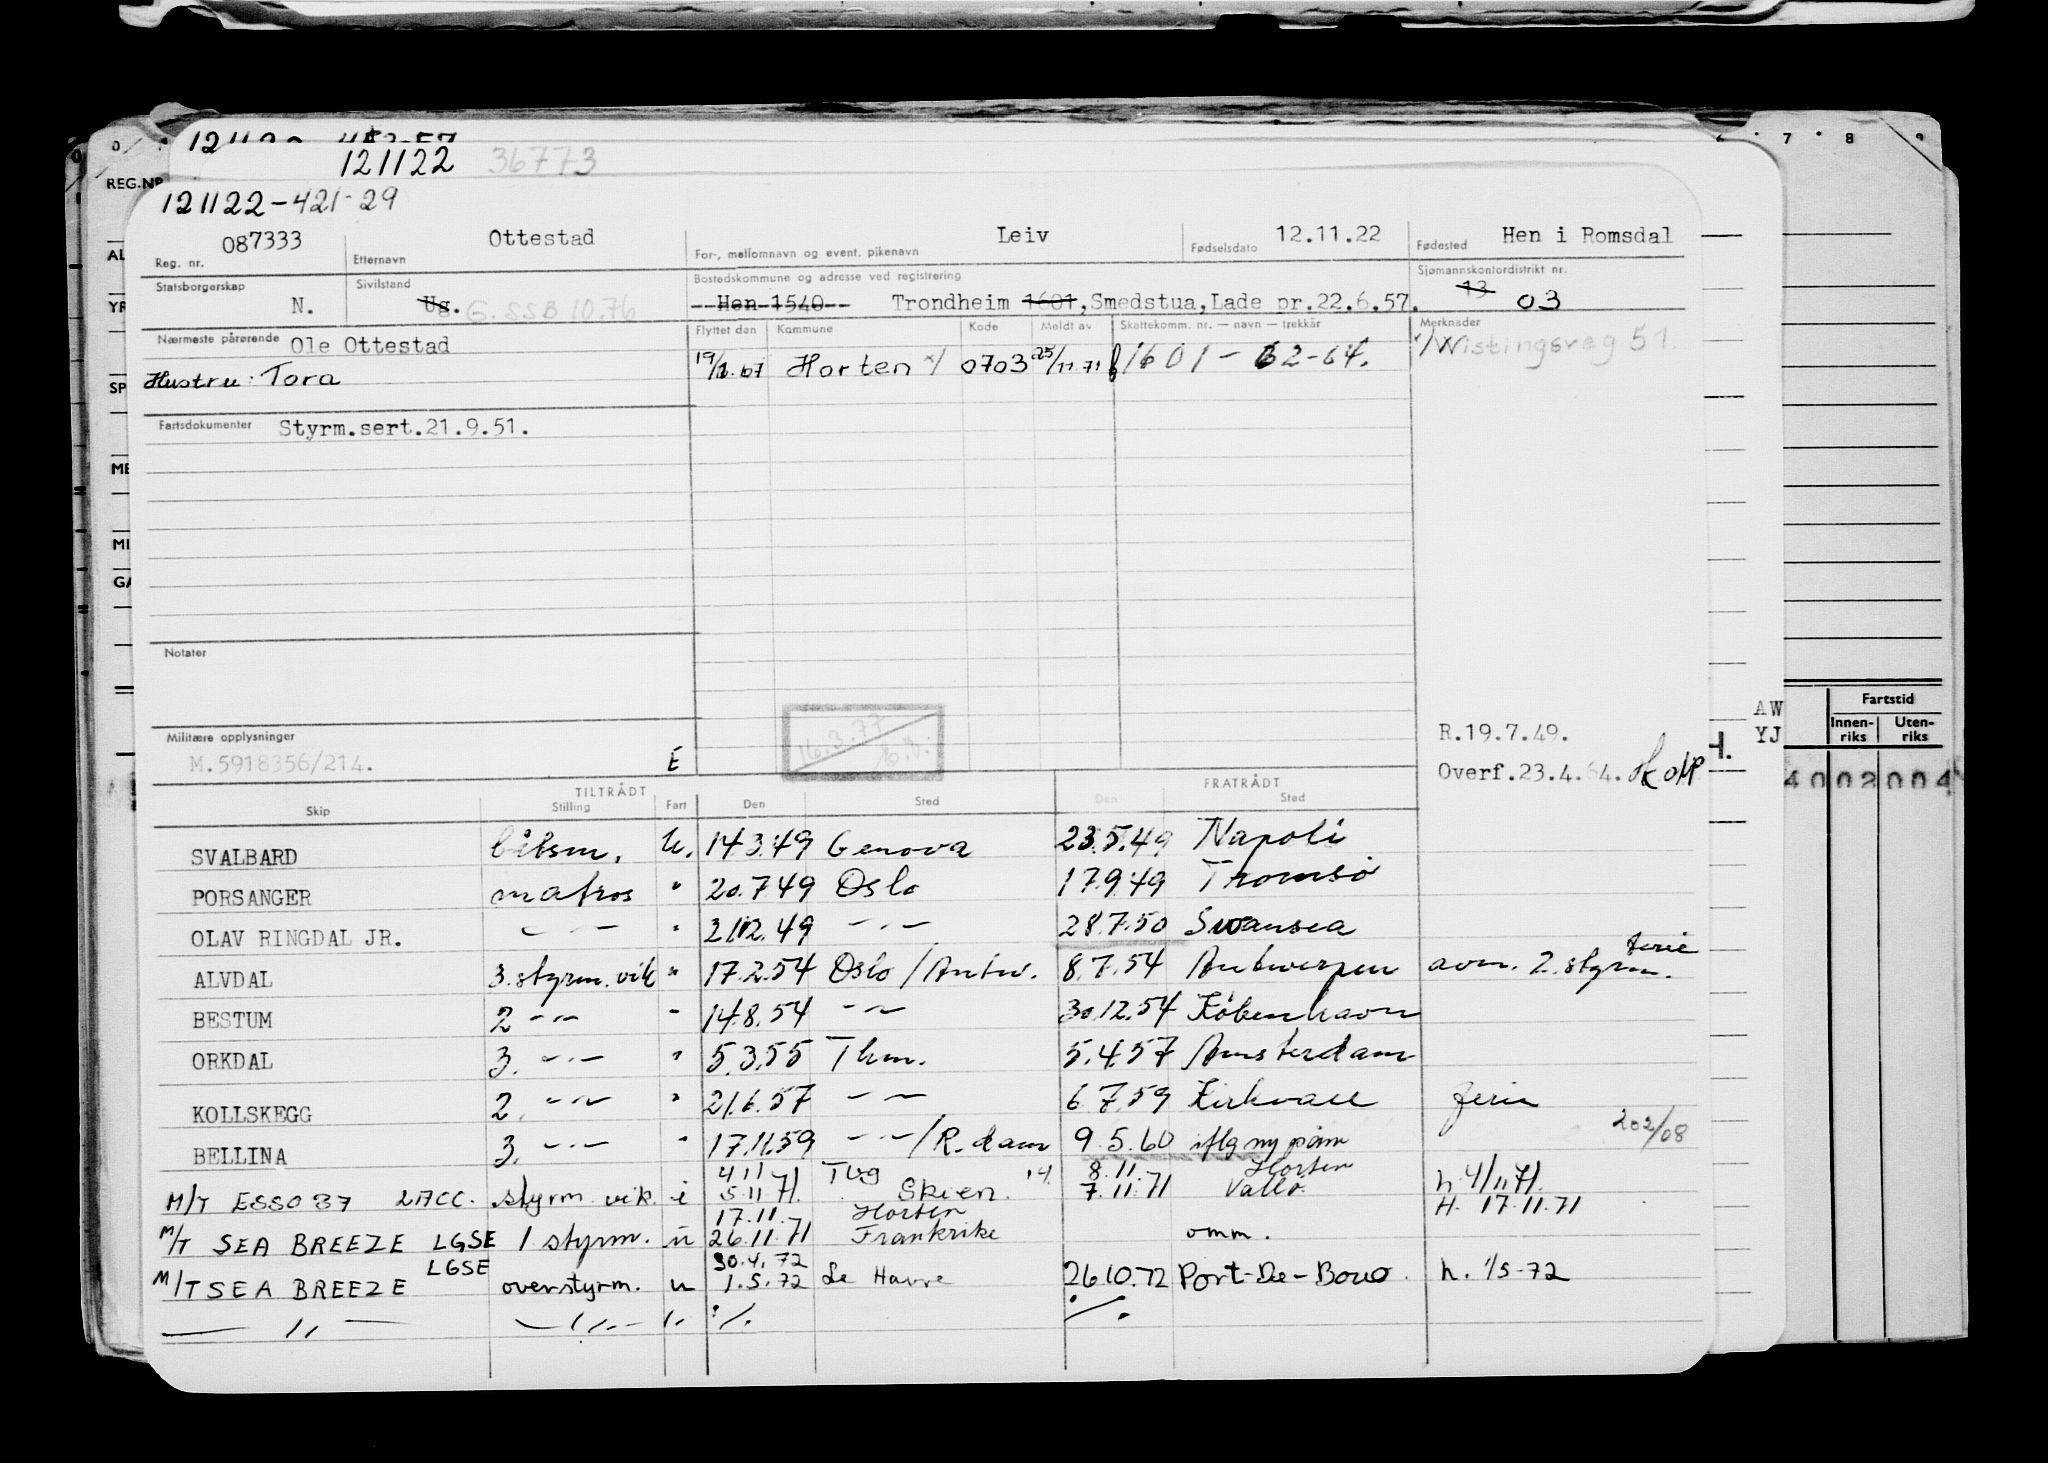 121122 36773
121122-421-29
REG.NR
087333 Ottestad Leiv 12.11.22 Hen i Romsdal
Reg. nr. Etternavn For-, mellomnavn og event. pikenavn Fødselsdato Fødested
Statsborgerskap Sivilstand Bostedskommune og adresse ved registrering Sjømannskontordistrikt nr.
N. Ug. G. SSB 10.76 Hen 1540 Trondheim 1601, Smedstua, Lade pr.22.6.57. 13 03
Nærmeste pårørende Ole Ottestad Flyttet den Kommune Kode Meldt av Skattekomm. nr. — navn — trekkår Merknader
Hustru: Tora Horten x/ 0703 25/11.71 1601 - 62-64. x/ Wistingsveg 51.
Fartsdokumenter Styrm.sert.21.9.51.
Notater
Militære opplysninger R.19.7.49.
M.5918356/214. E 16.3.77 Overf.23.4.64.
TILTRÅDT FRATRÅDT
Skip Stilling Fart Den Sted Den Sted
SVALBARD båtsm. U. 14.3.49 Genova 23.5.49 Napoli
PORSANGER matros " 20.7.49 Oslo 17.9.49 Tromsø
OLAV RINGDAL JR. — " — " 21.12.49 — " — 28.7.50 Swansea
ALVDAL 3. styrm. vik " 17.2.54 Oslo / Antw. 8.7.54 Antwerpen avm. 2. styrm. ferie
BESTUM 2 — " — " 14.8.54 — " — 30.12.54 København
ORKDAL 3. — " — " 5.3.55 Thm. 5.4.57 Amsterdam
KOLLSKEGG 2. — " — " 21.6.57 — " — 6.7.59 Kirkwall ferie
202/08
BELLINA 3. — " — " 17.11.59 — " — / R.dam 9.5.60 iflg ny påm
4.11 Tbg 8.11. Horten
M/T ESSO 37 LACC. styrm. vik. i 5.11.71. Skien. 7.11.71 Vallø. h. 4/11 71.
17.11. Horten H. 17.11.71
M/T SEA BREEZE LGSE 1 styrm. u 26.11.71 Frankrike omm.
LGSE 30.4.72
M/T SEA BREEZE overstyrm. u 1.5.72 Le Havre 26.10.72 Port-De-Bouo. h. 1/5-72
— " — — " — " ./. ./.
Fartstid
Innen-riks Uten-riks
AW
YJ
4 0 0 2 0 0 4